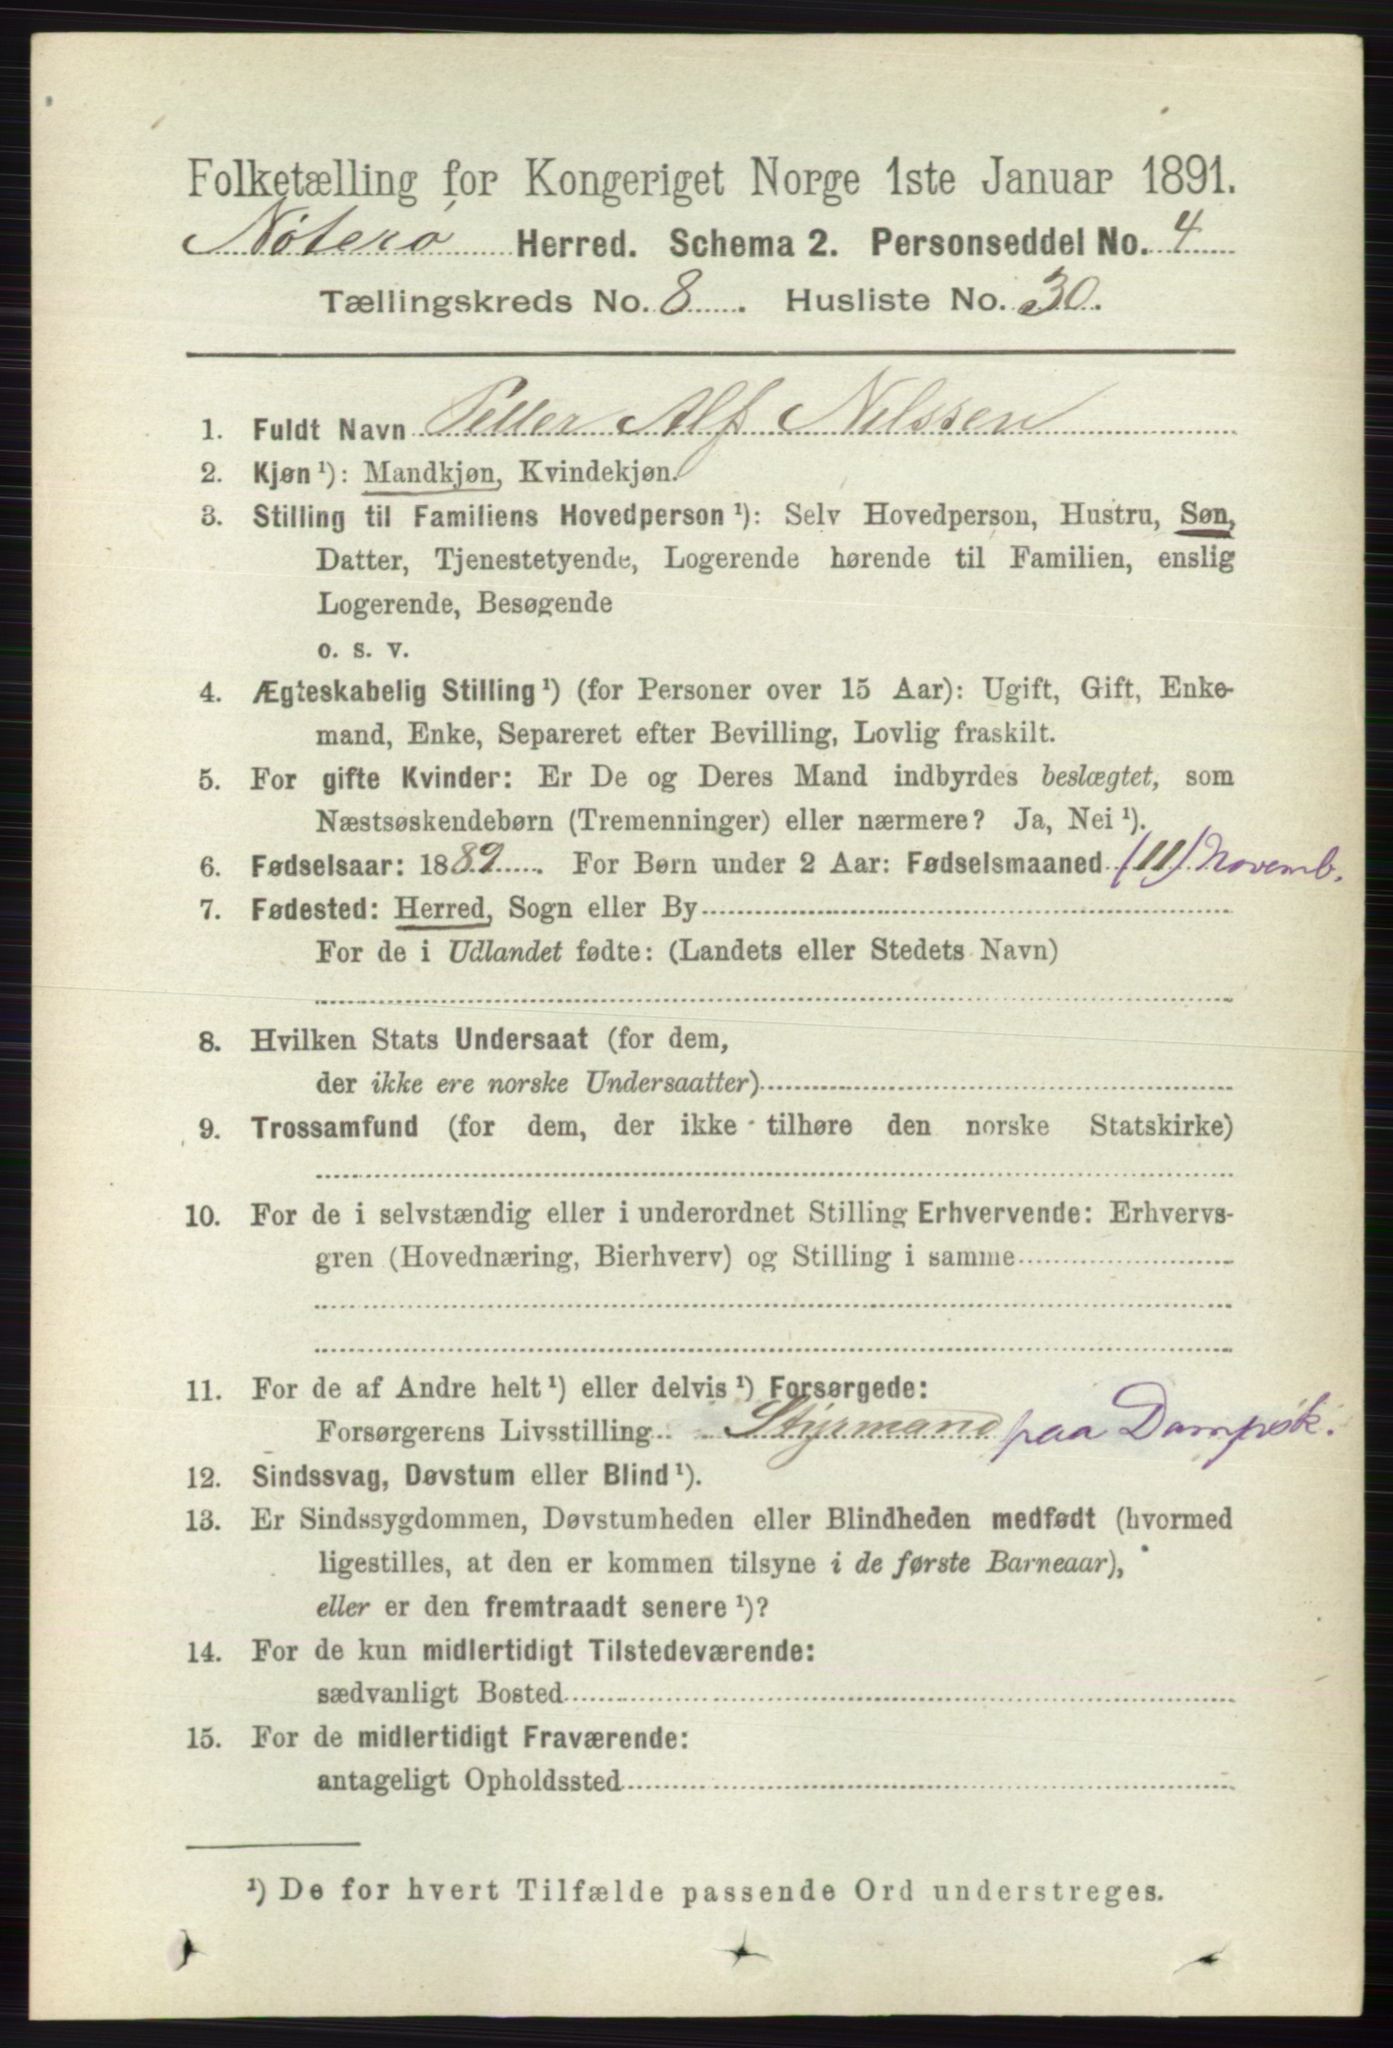 Folketælling for Kongeriget Norge 1ste Januar 1891.
Nøterø Herred. Schema 2. Personseddel No. 4
Tællingskreds No. 8. Husliste No. 30.
1. Fuldt Navn Petter Alf Nilssen
2. Kjøn ¹): Mandkjøn, Kvindekjøn.
3. Stilling til Familiens Hovedperson ¹): Selv Hovedperson, Hustru, Søn,
Datter, Tjenestetyende, Logerende hørende til Familien, enslig
Logerende, Besøgende
o. s. v.
4. Ægteskabelig Stilling ¹) (for Personer over 15 Aar): Ugift, Gift, Enke-
mand, Enke, Separeret efter Bevilling, Lovlig fraskilt.
5. For gifte Kvinder: Er De og Deres Mand indbyrdes beslægtet, som
Næstsøskendebørn (Tremenninger) eller nærmere? Ja, Nei ¹).
6. Fødselsaar: 1889. For Børn under 2 Aar: Fødselsmaaned (11) Novemb.
7. Fødested: Herred, Sogn eller By
For de i Udlandet fødte: (Landets eller Stedets Navn)
8. Hvilken Stats Undersaat (for dem,
der ikke ere norske Undersaatter)
9. Trossamfund (for dem, der ikke tilhøre den norske Statskirke)
10. For de i selvstændig eller i underordnet Stilling Erhvervende: Erhvervs-
gren (Hovednæring, Bierhverv) og Stilling i samme
11. For de af Andre helt ¹) eller delvis ¹) Forsørgede:
Forsørgerens Livsstilling Styrmand paa Dampsk.
12. Sindssvag, Døvstum eller Blind ¹).
13. Er Sindssygdommen, Døvstumheden eller Blindheden medfødt (hvormed
ligestilles, at den er kommen tilsyne i de første Barneaar),
eller er den fremtraadt senere ¹)?
14. For de kun midlertidigt Tilstedeværende:
sædvanligt Bosted
15. For de midlertidigt Fraværende:
antageligt Opholdssted
¹) De for hvert Tilfælde passende Ord understreges.